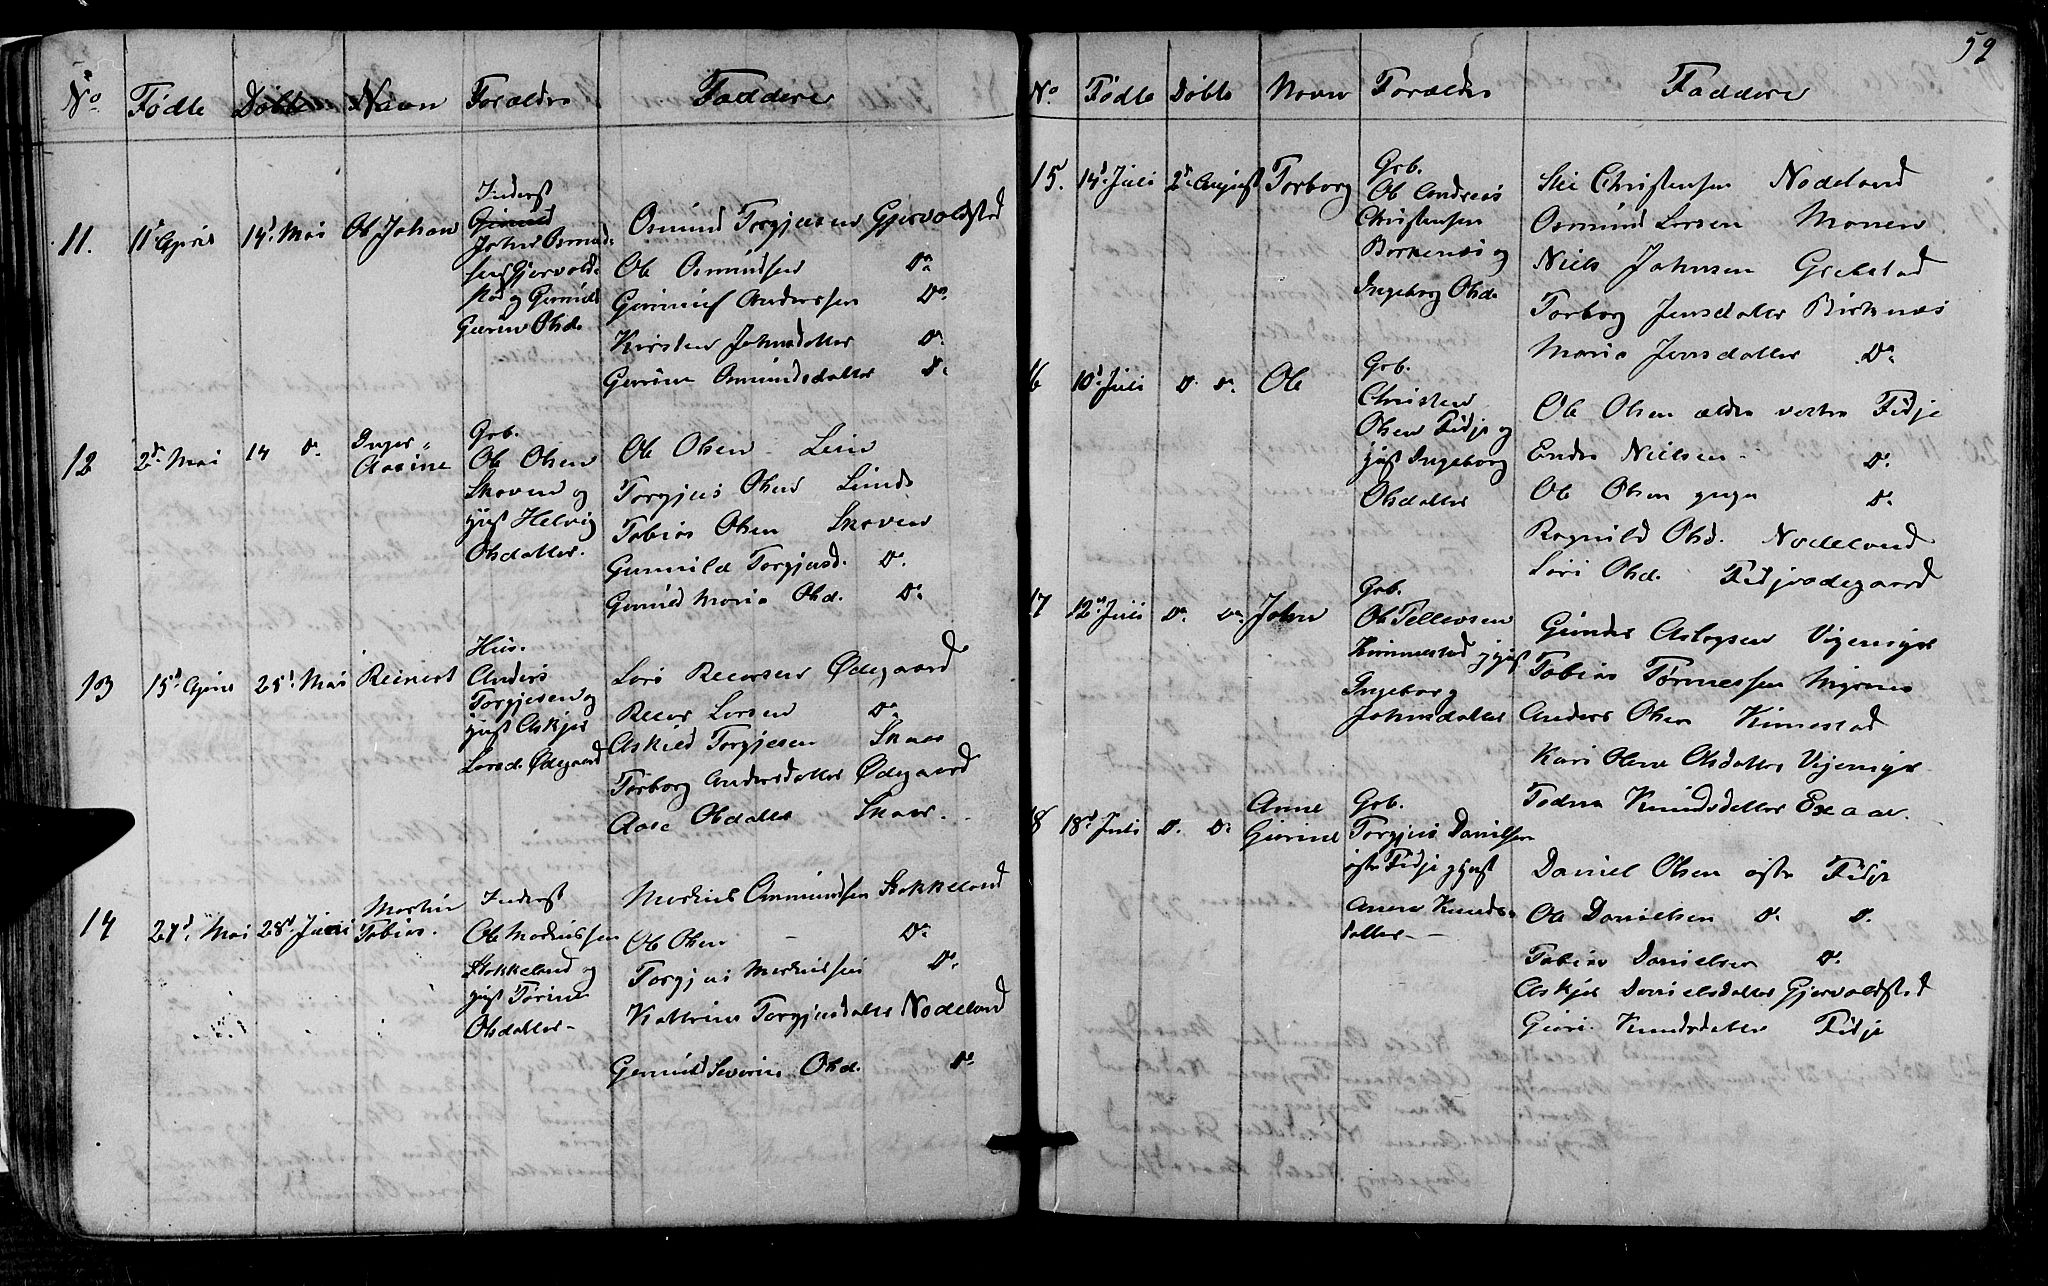 No Fødte Døbte Navn Forældre Faddere
11. 11te April 14d Mai Ole Johan
Inderst
Gunuld
Johns Osmund-
sen Gjervold-
stad og Gunuld
Gurine Olsd.
Osmund Torgjusen Gjervoldstad
Ole Osmundsen Do
Gunnuf Anderssen Do
Kirsten Johnsdatter Do
Gurine Osmundsdatter Do
12 2d Mai 14 Do Inger
Aasine
Grb.
Ole Olsen
Skoven og
Helvig
Olsdatter.
Ole Olsen Lein
Torgjus Olsen Lunde
Tobias Olsen Skoven
Gunnild Torgjusd. Do
Gunild Maria Olsd. Do
13 15d April 25d Mai Reinert
Huus.
Anders
Torgjesen og
Askjer
Larsd. Ødegaard
Lars Reiersen Ødegaard
Reier Larsen Do
Askild Torgjesen Skaar
Torborg Andersdatter Ødegaard
Aase Olsdatter Skaar.
14 27d. Mai 28d Juni
Tobias.
Inderst
Ole
Stokkeland og
Torine
Olsdatter
Omundsen Stokkeland
Ole Olsen Do
Torgjus Do
Kathrine Torgjusdatter Nodeland
Gunild Severine Olsd. Do
59
No Fødte Døbte Navn Forældre Faddere
15. 14d Juli 2d August Torborg
Grb.
Ole Andreas
Christensen
Birkenes og
Ingeborg Olsd.
Stie Christensen Nodeland
Osmund Larsen Monen
Niels Johnsen Grebstad
Torborg Jensdatter Birkenes
Maria Jensdatter Do
16 10d Juli Do Do Ole
Grb.
Christen
Olsen Fidje og
Ingeborg
Olsdatter
Ole Olsen ældre vestre Fidje
Endre Nielsen Do
Ole Olsen yngre Do
Ragnild Olsd. Nodeland
Siri Olsd. Fidjeødegaard
17 12d Juli Do Do John
Grb.
Ole Tellevsen
Kimmestad og
Ingeborg
Johnsdatter
Gunder Aslagsen
Tobias Myrene
Anders Olsen Kimestad
Kari Olene Olsdatter
Todne Knudsdatter
18 18d Juli Do Do Anne
Gurine
Grb.
Torgjus Danielsen
østre Fidje
Anne Knuds-
datter
Daniel Olsen østre Fidje
Ole Danielsen Do Do
Tobias Danielsen Do
Askjer Danielsdatter Gjervoldstad
Guri Knudsdatter Fidje